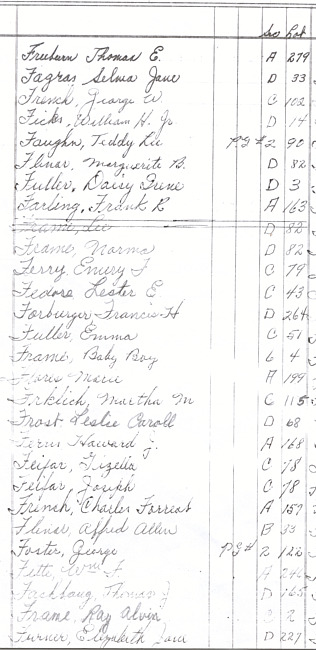 Sec Lot
Freeburn Thomas E. A 279
Fagras Selma Jane D 33
French, George W C 102
Ficks, William H. Jr. D 14
Faughn, Teddy Lee PG # 2 90
Flinar, Marguerite B. D 82
Fuller, Daisy Irene D 3
Farling, Frank R A 163
Frame, Leo D 82
Frame, Norma D 82
Ferry Emery F C 79
Fedora Lester E. C 43
Forburger Francis H D 264
Fuller, Emma C 51
Frame, Baby Boy 6 4
Floris Marie A 199
Frklich, Martha M C 115
Frost Leslie Caroll D 68
Ferns Howard J. A 168
Feifar, Gizella C 78
Feifar, Joseph C 78
French, Charles Forrest A 157
Flinar, Alfred Allen B 33
Foster, George PG # 2 122
Fette, Wm F A
Fachbaug, Thomas J D 165
Frame, Ray Alvin C 2
Furner, Elizabeth Jane D 227